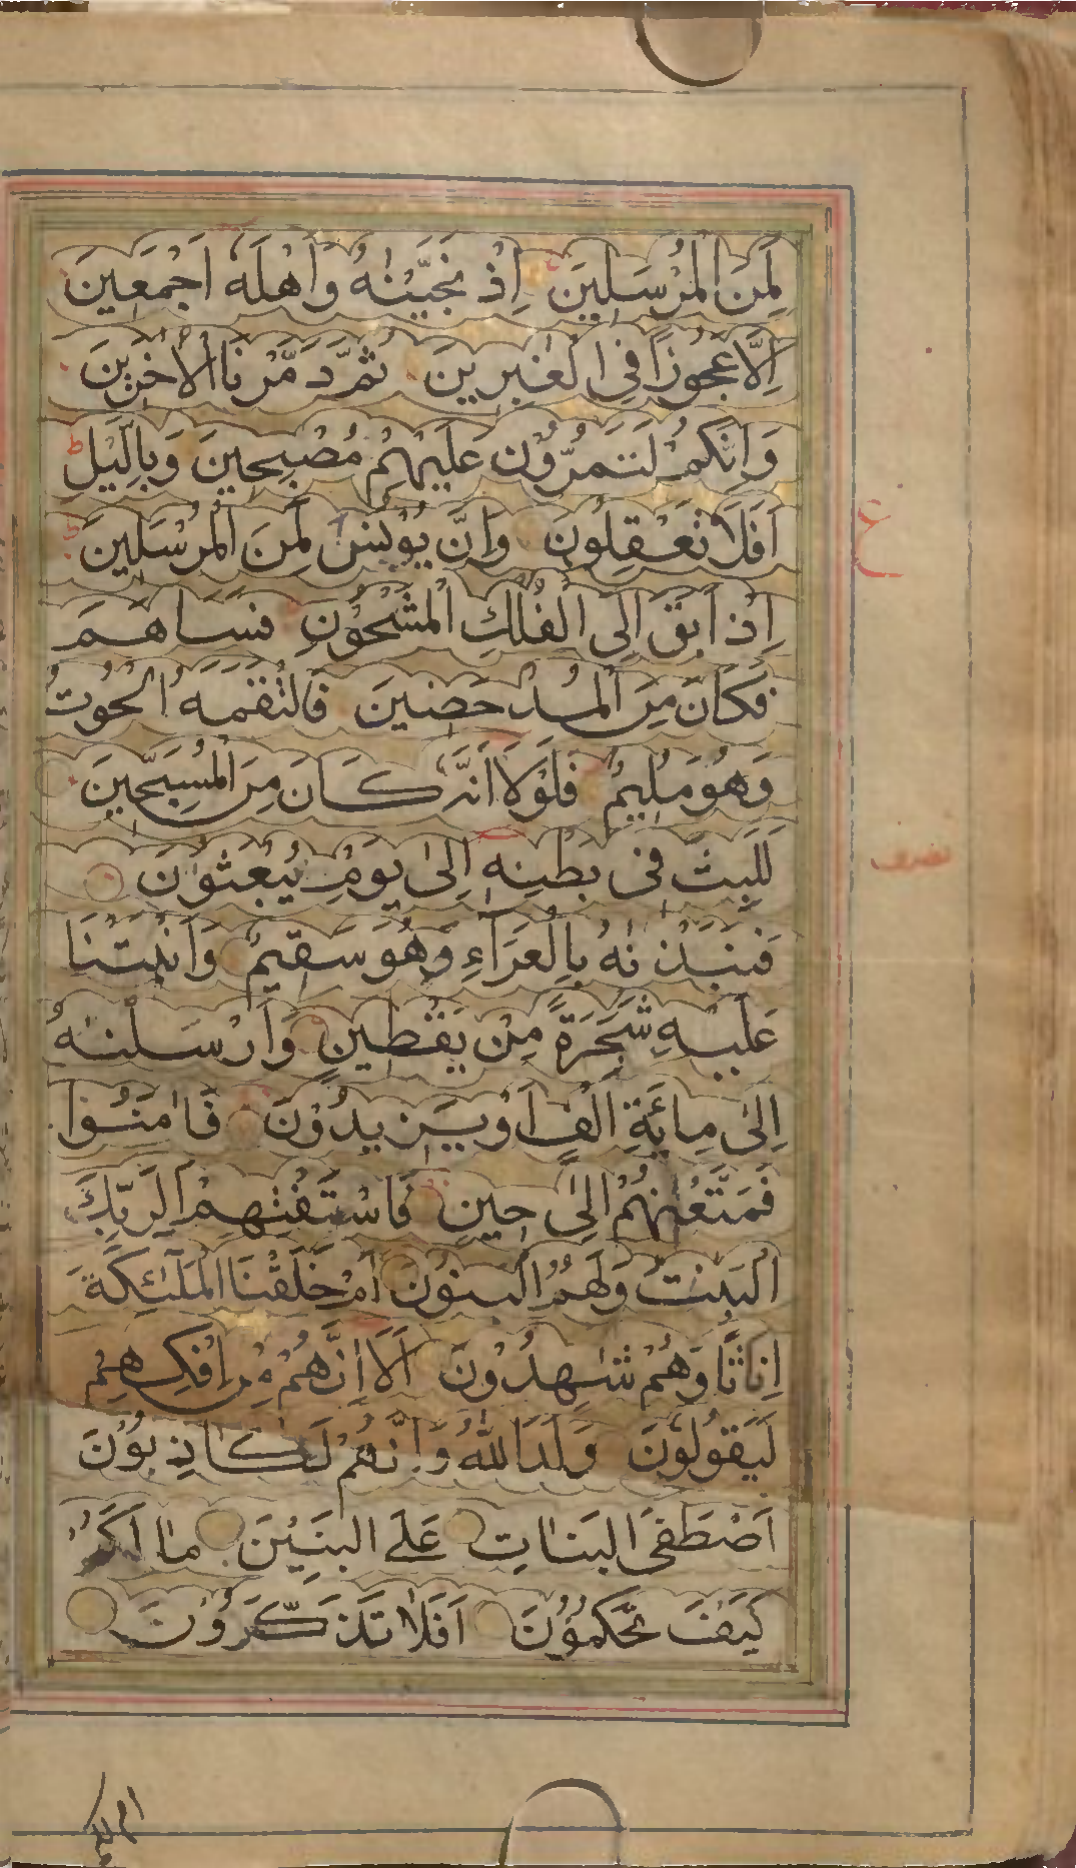 لَمِنَ الْمُرْسَلِينَ اِذْ نَجَّيْنٰهُ وَاَهْلَهٗ اَجْمَعِينَ
اِلَّا عَجُوزًا فِي الْغٰبِرِينَ ثُمَّ دَمَّرْنَا الْاٰخَرِينَ
وَاِنَّكُمْ لَتَمُرُّوْنَ عَلَيْهِمْ مُصْبِحِينَ وَبِالَّيْلِ ط
اَفَلَا تَعْقِلُونَ وَاِنَّ يُوْنُسَ لَمِنَ الْمُرْسَلِينَ
ع
اِذْ اَبَقَ اِلَى الْفُلْكِ الْمَشْحُوْنِ فَسَاهَمَ
فَكَانَ مِنَ الْمُدْحَضِينَ فَالْتَقَمَهُ الْحُوتُ
وَهُوَ مُلِيمٌ فَلَوْلَا اَنَّهٗ كَانَ مِنَ الْمُسَبِّحِينَ
لَلَبِثَ فِى بَطْنِهٖ اِلٰى يَوْمِ يُبْعَثُوْنَ
نصف
فَنَبَذْنٰهُ بِالْعَرَآءِ وَهُوَ سَقِيْمٌ وَاَنْبَتْنَا
عَلَيْهِ شَجَرَةً مِنْ يَقْطِينٍ وَاَرْسَلْنٰهُ
اِلٰى مِائَةِ اَلْفٍ اَوْ يَزِيدُوْنَ فَاٰمَنُوْا
فَمَتَّعْنٰهُمْ اِلٰى حِينٍ فَاسْتَفْتِهِمْ اَلِرَبِّكَ
الْبَنٰتُ وَلَهُمُ الْبَنُوْنَ اَمْ خَلَقْنَا الْمَلٰٓئِكَةَ
اِنَاثًا وَهُمْ شٰهِدُوْنَ اَلَا اِنَّهُمْ مِنْ اِفْكِهِمْ
لَيَقُولُوْنَ وَلَدَ اللّٰهُ وَاِنَّهُمْ لَكَاذِبُوْنَ
اَصْطَفَى الْبَنَاتِ عَلَى الْبَنِيْنَ مَا لَكُمْ
كَيْفَ تَحْكُمُوْنَ اَفَلَا تَذَكَّرُوْنَ
ام لكم